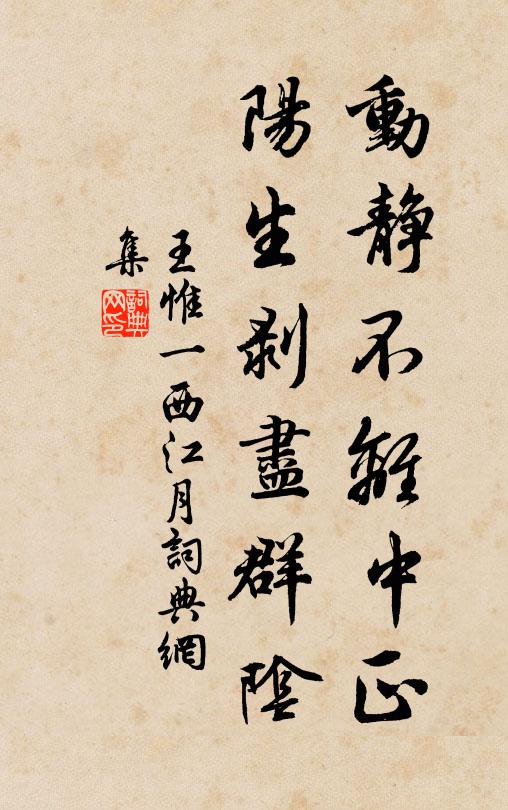 動靜不離中正
陽生剝盡群陰
王惟一西江月詞典網
集
詞典
网印